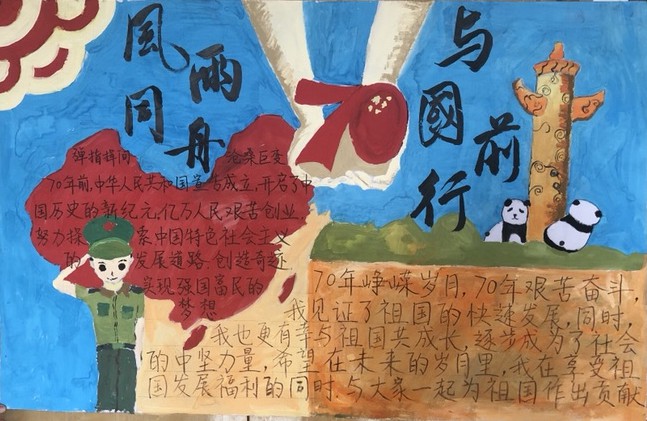 風雨同舟
与國前行
70
弹指挥间 沧桑巨变
70年前,中华人民共和国宣告成立,开启了中
国历史的新纪元,亿万人民艰苦创业,
努力探索中国特色社会主义
的发展道路,创造奇迹,
实现强国富民的
梦想
70年峥嵘岁月,70年艰苦奋斗,
我见证了祖国的快速发展,同时,
我也更有幸与祖国共成长,逐步成为了社会
的中坚力量,希望在未来的岁月里,我在享受祖
国发展福利的同时.与大家一起为祖国作出贡献